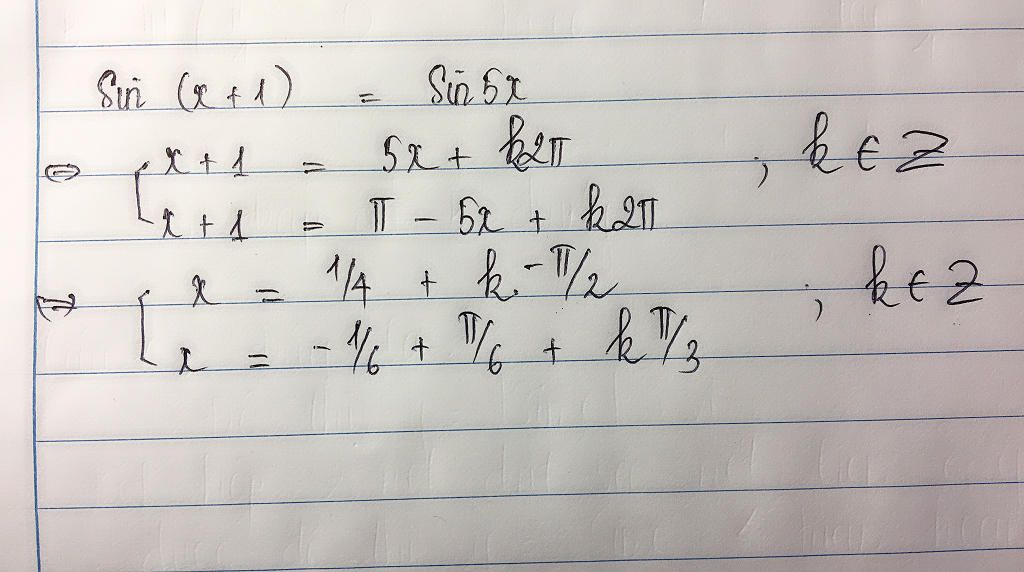 Sin (x + 1) = Sin 5x
⇔ [ x + 1 = 5x + k2π ; k ∈ Z
[ x + 1 = π - 5x + k2π
⇔ [ x = 1/4 + k. -π/2 ; k ∈ Z
[ x = -1/6 + π/6 + k π/3